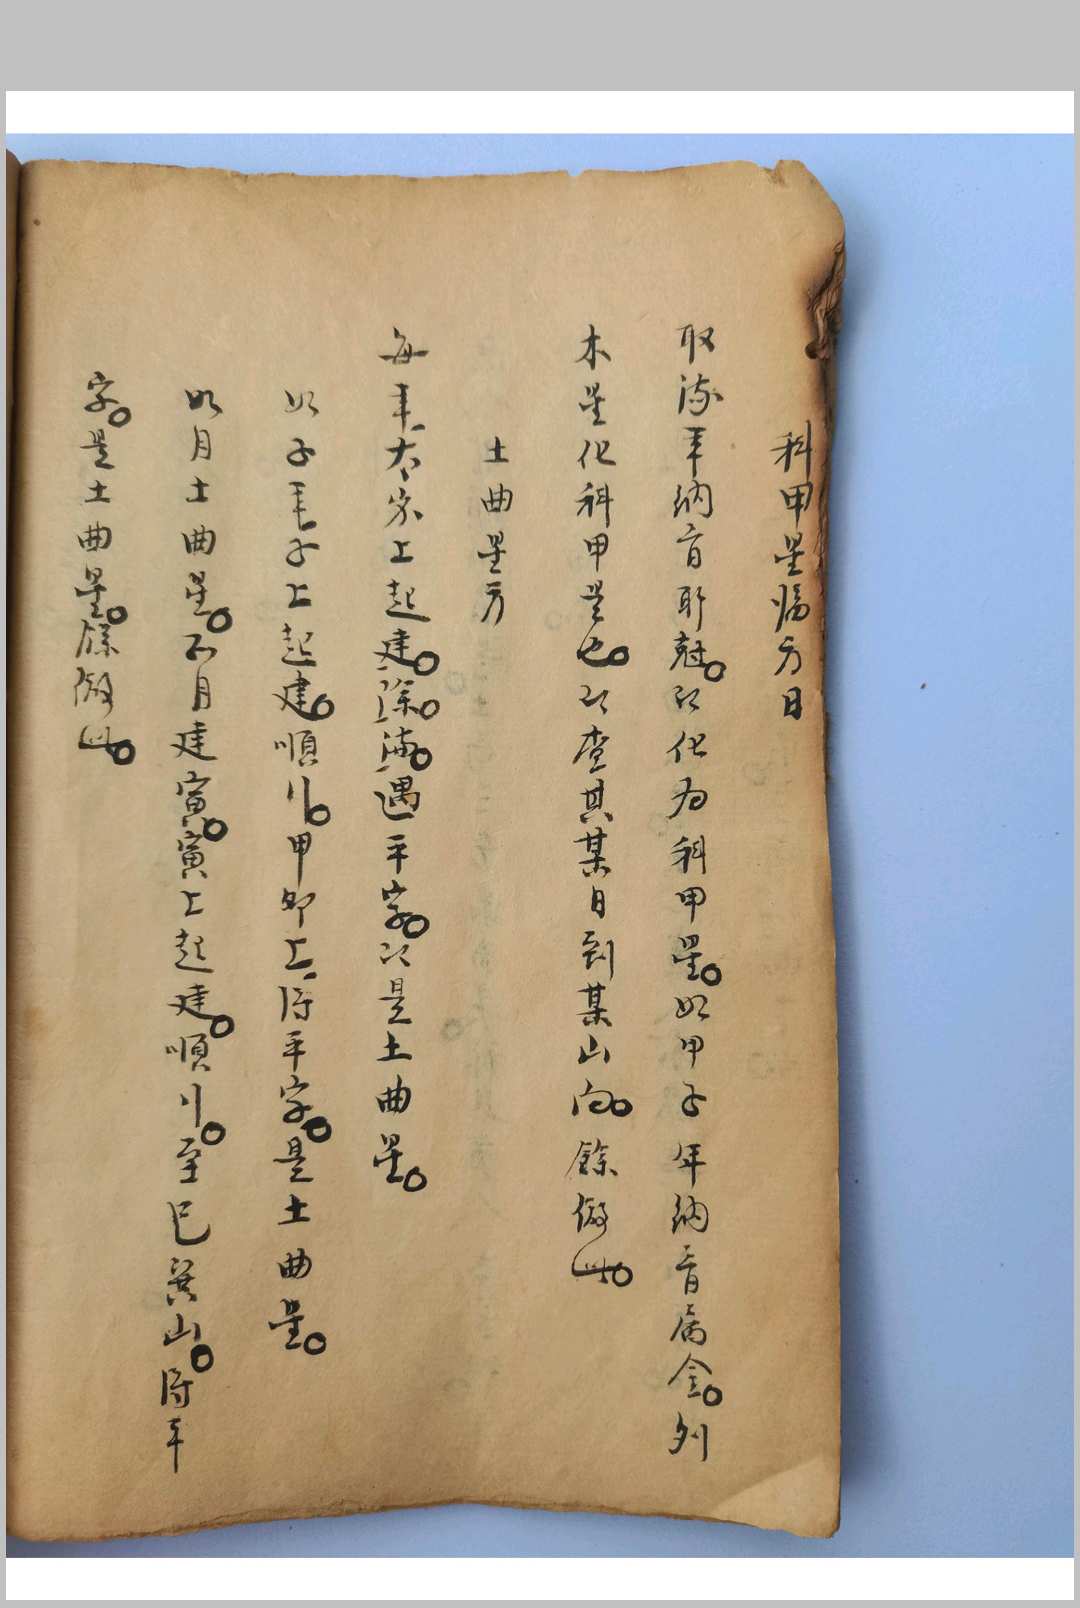 科甲星臨方日
取流年納音所尅。即化为科甲星。如甲子年納音属金。列
木星化科甲是也。即查其某日到某山向。餘倣此。
土曲星方
每年太岁上起建。除。满。遇平字。即是土曲星。
如子年子上起建。順行。甲卯上得平字。是土曲星。
如月土曲星。正月建寅。寅上起建。順行。至巳巽山。得平
字。是土曲星。餘倣此。